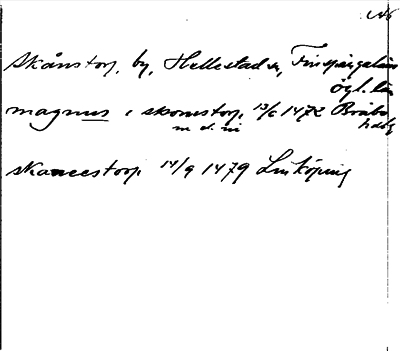 Skånstorp, by, Hellestad sn, Finspångalän
ögl. län
magnus i skonstorp, 13/6 1472 Bråbo
m d. ni hdbg
skaneestorp 14/9 1479 Linköping